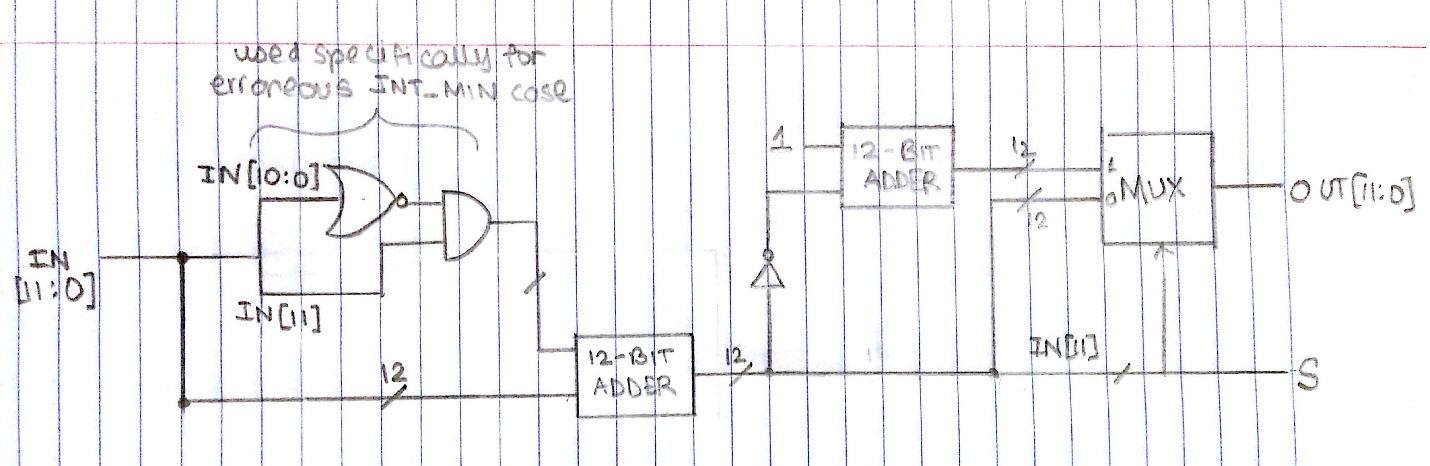 used specifically for
erroneous INT_MIN case
IN[10:0]
IN
[11:0]
IN[11]
12
12-BIT
ADDER
12
1
12-BIT
ADDER
12
12
1
0
MUX
OUT[11:0]
IN[11]
S